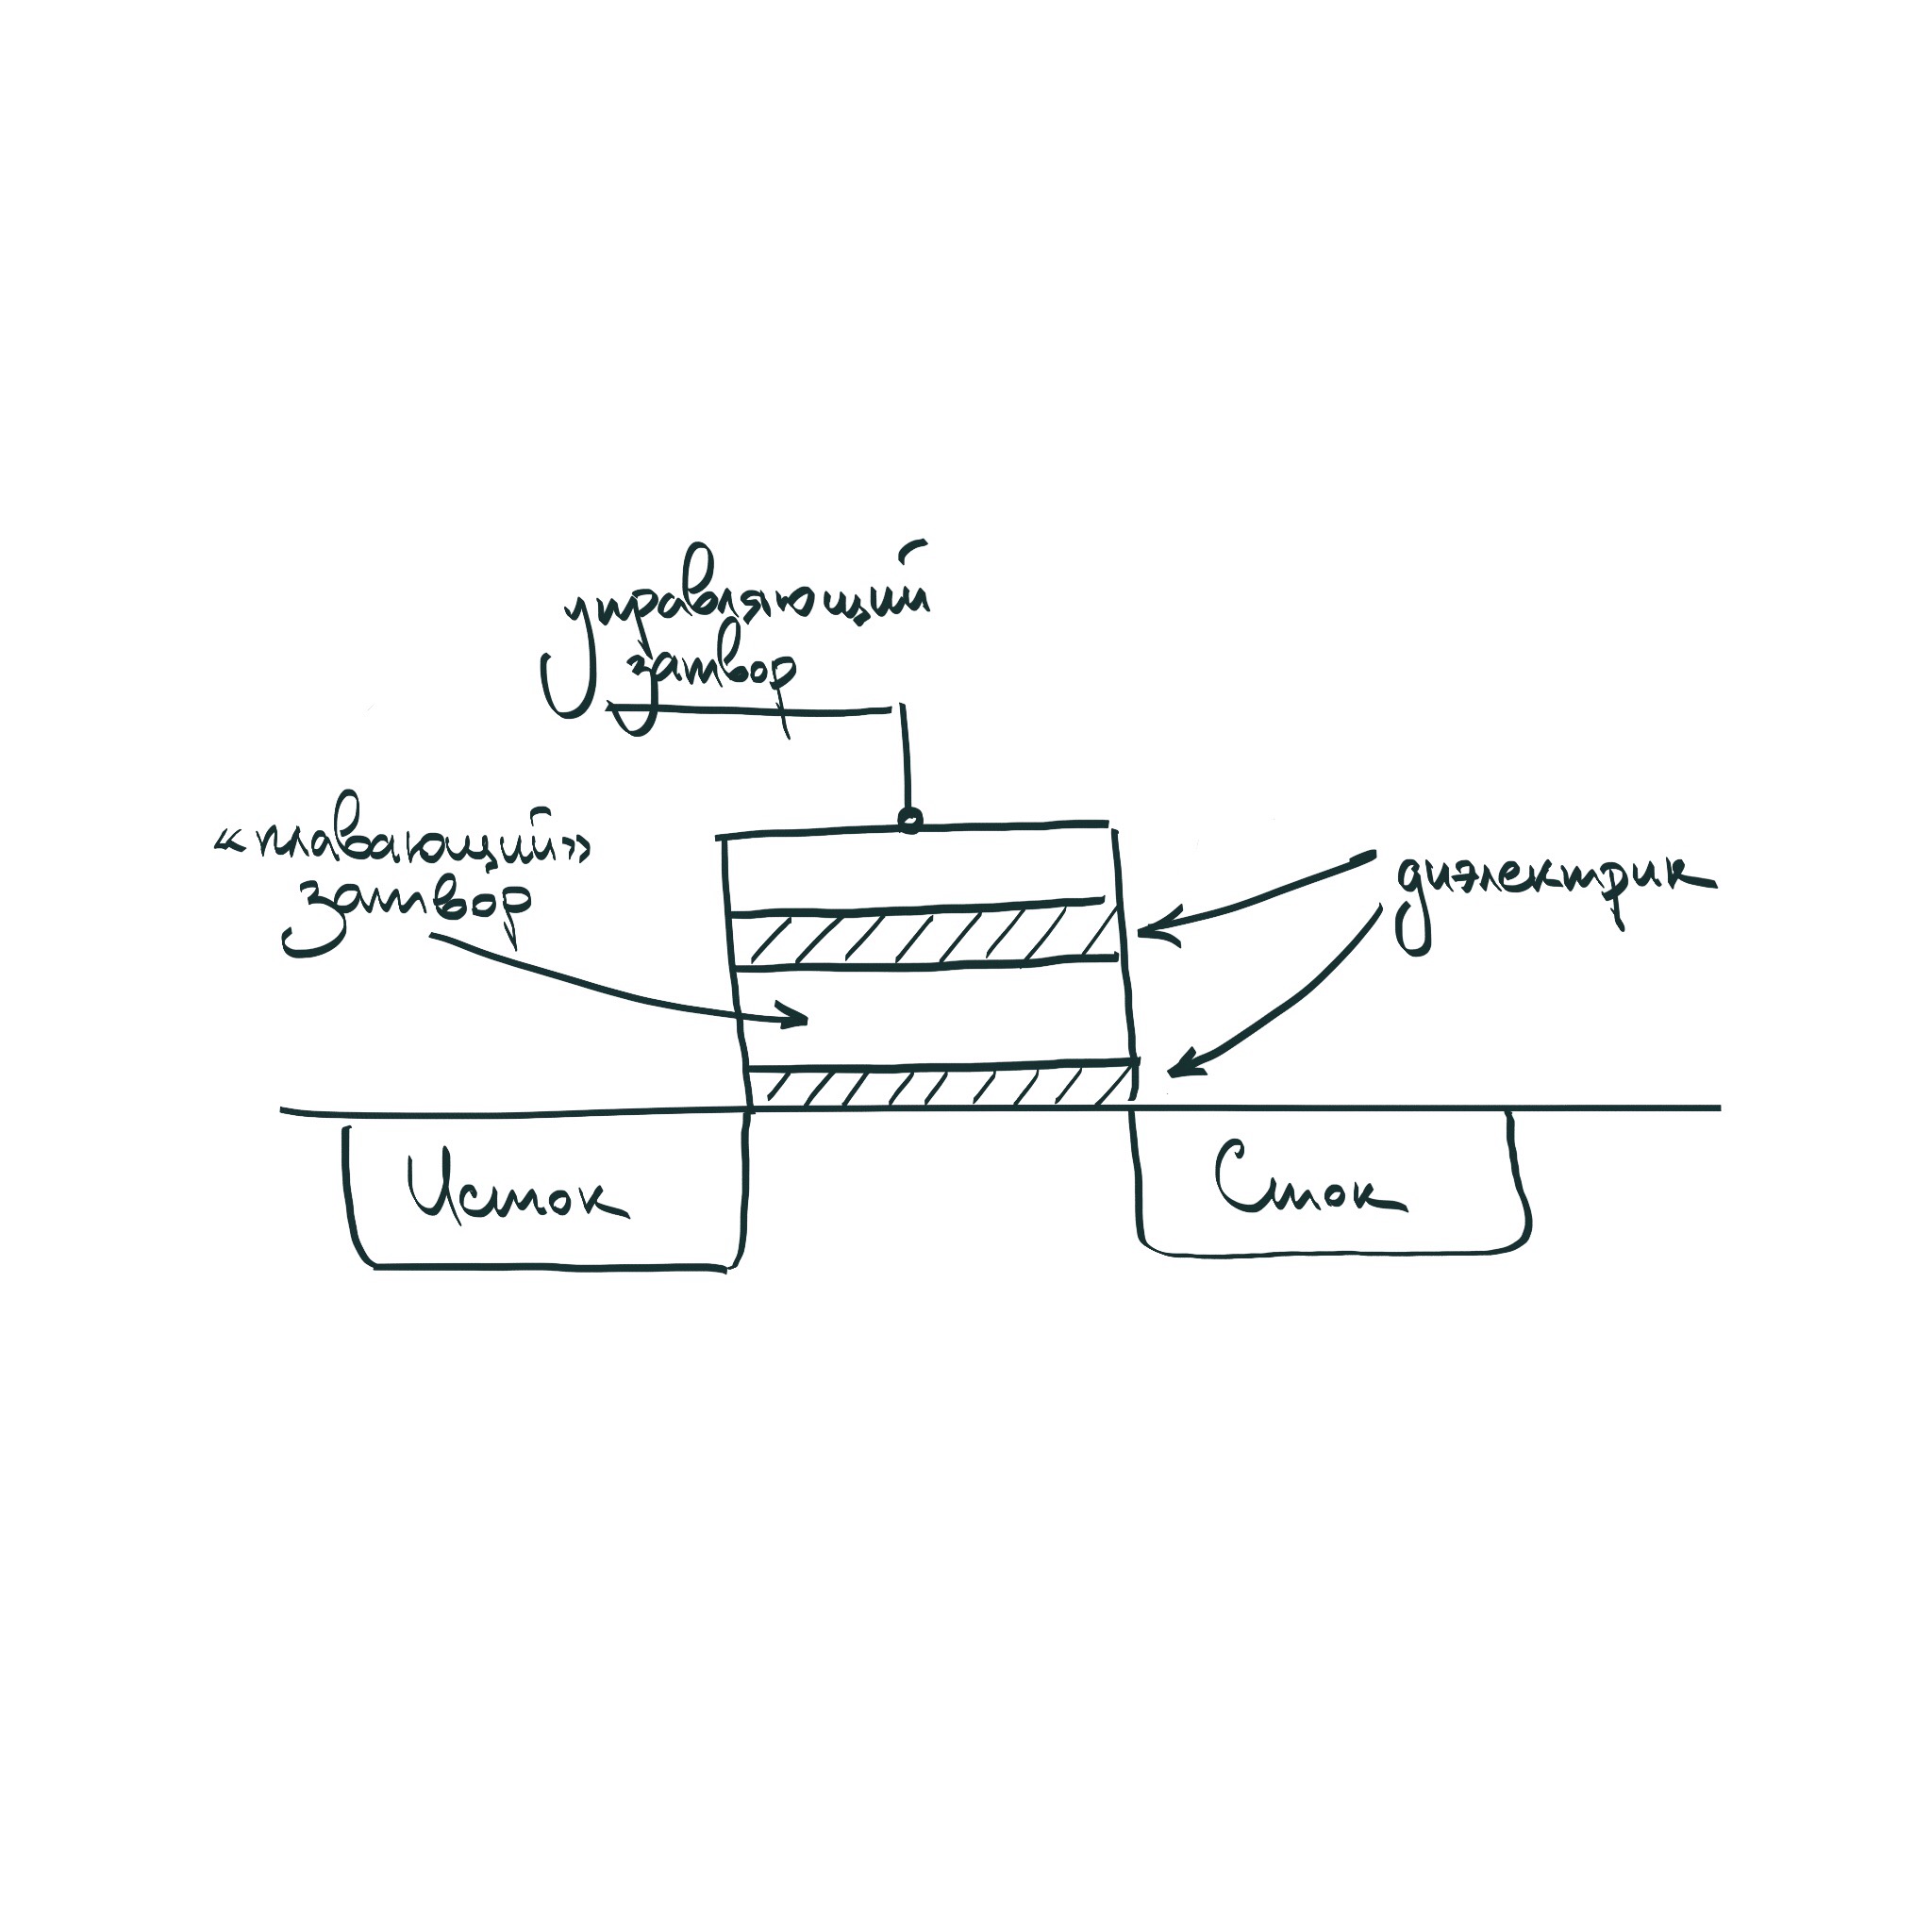 управляющий
затвор
«плавающий»
затвор
диэлектрик
Исток
Сток